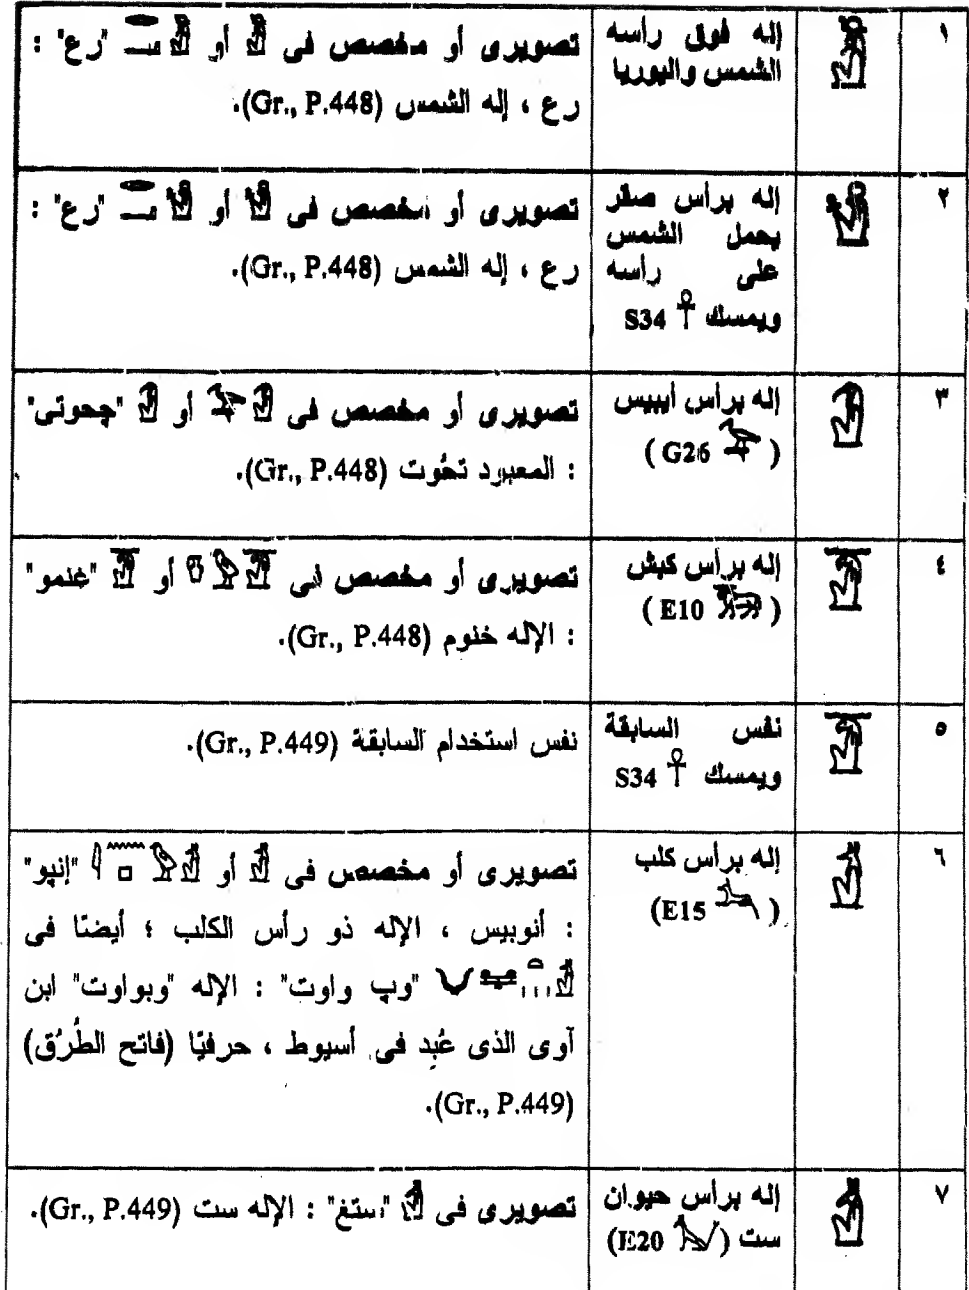 ١
إله فوق رأسه
الشمس واليوريا
تصويرى أو مخصص فى أو "رع" :
رع ، إله الشمس (Gr., P.448).
٢
إله برأس صقر
يحمل الشمس
على رأسه
ويمسك S34
تصويرى أو مخصص فى أو "رع" :
رع ، إله الشمس (Gr., P.448).
٣
إله برأس أيبيس
( G26 )
تصويرى أو مخصص فى أو "جحوتى"
: المعبود تحُوت (Gr., P.448).
٤
إله برأس كبش
( E10 )
تصويرى أو مخصص فى أو "غنمو"
: الإله خنوم (Gr., P.448).
٥
نفس السابقة
ويمسك S34
نفس استخدام السابقة (Gr., P.449).
٦
إله برأس كلب
(E15 )
تصويرى أو مخصص فى أو "إنپو"
: أنوبيس ، الإله ذو رأس الكلب ؛ أيضًا فى
"وپ واوت" : الإله "وبواوت" ابن
آوى الذى عُبِد فى أسيوط ، حرفيًا (فاتح الطُرُق)
(Gr., P.449).
٧
إله برأس حيوان
ست (E20 )
تصويرى فى "ستغ" : الإله ست (Gr., P.449).